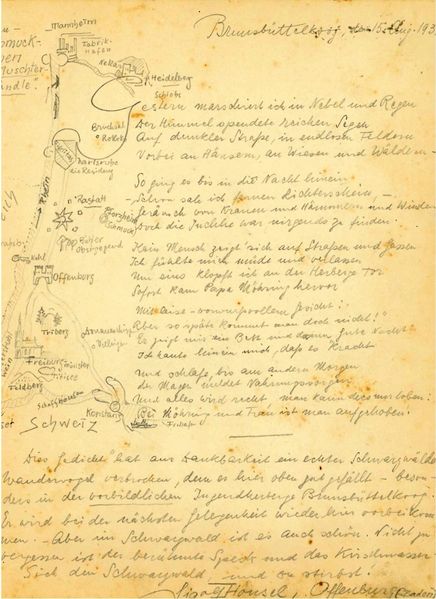 Brunsbüttelkoog, den 15. Aug. 193
Gestern marschiert ich in Nebel und Regen
Der Himmel spendete reichen Segen
Auf dunkler Straße, in endlosen Feldern
Vorbei an Häusern, an Wiesen und Wäldern
So ging es bis in die Nacht hinein
Schon sah ich fernen Lichterschein
Geräusch von Kranen und Hämmern und Winden
Doch die Juchhe war nirgends zu finden.
Kein Mensch zeigt sich auf Straßen und Gassen
Ich fühlte mich müde und verlassen
Um eins klopft ich an der Herberge Tor
Sofort kam Papa Möhring hervor
Mit leise-vorwurfsvollem Gesicht:
Aber so späte kommt man doch nicht!
Er zeigt mir ein Bett und dann, gute Nacht
Ich haute hinein mich, daß es kracht
Und schlafe bis am andern Morgen
Der Magen meldet Nahrungssorgen
Und alles wird recht man kann
Bei Möhring und Frau ist man aufgehoben.
Dies Gedicht hat aus Dankbarkeit ein echter Schwarzwälder
Wandervogel verbrochen, denn es hier oben gut gefällt - beson-
ders in der vorbildlichen Jugendherberge Brunsbüttelkoog.
Er wird bei der nächsten Gelegenheit wieder hier vorbeikom-
men. - Aber im Schwarzwald ist es auch schön. Nicht zu
vergessen ist der berühmte Speck und das Kirschwasser
Sieh den Schwarzwald und stirbst!
Offenburg (Baden)
Mannheim
Fabrik-
Hafen
Neckar
Heidelberg
Schloß
Bruchsal
Karlsruhe
Rastatt
Pforzheim
Schmuck
Bühler
Kehl
Offenburg
Triberg
Donaueschingen
Villingen
Freiburg
Münster
Titisee
Feldberg
Schaffhausen
Konstanz
Schweiz